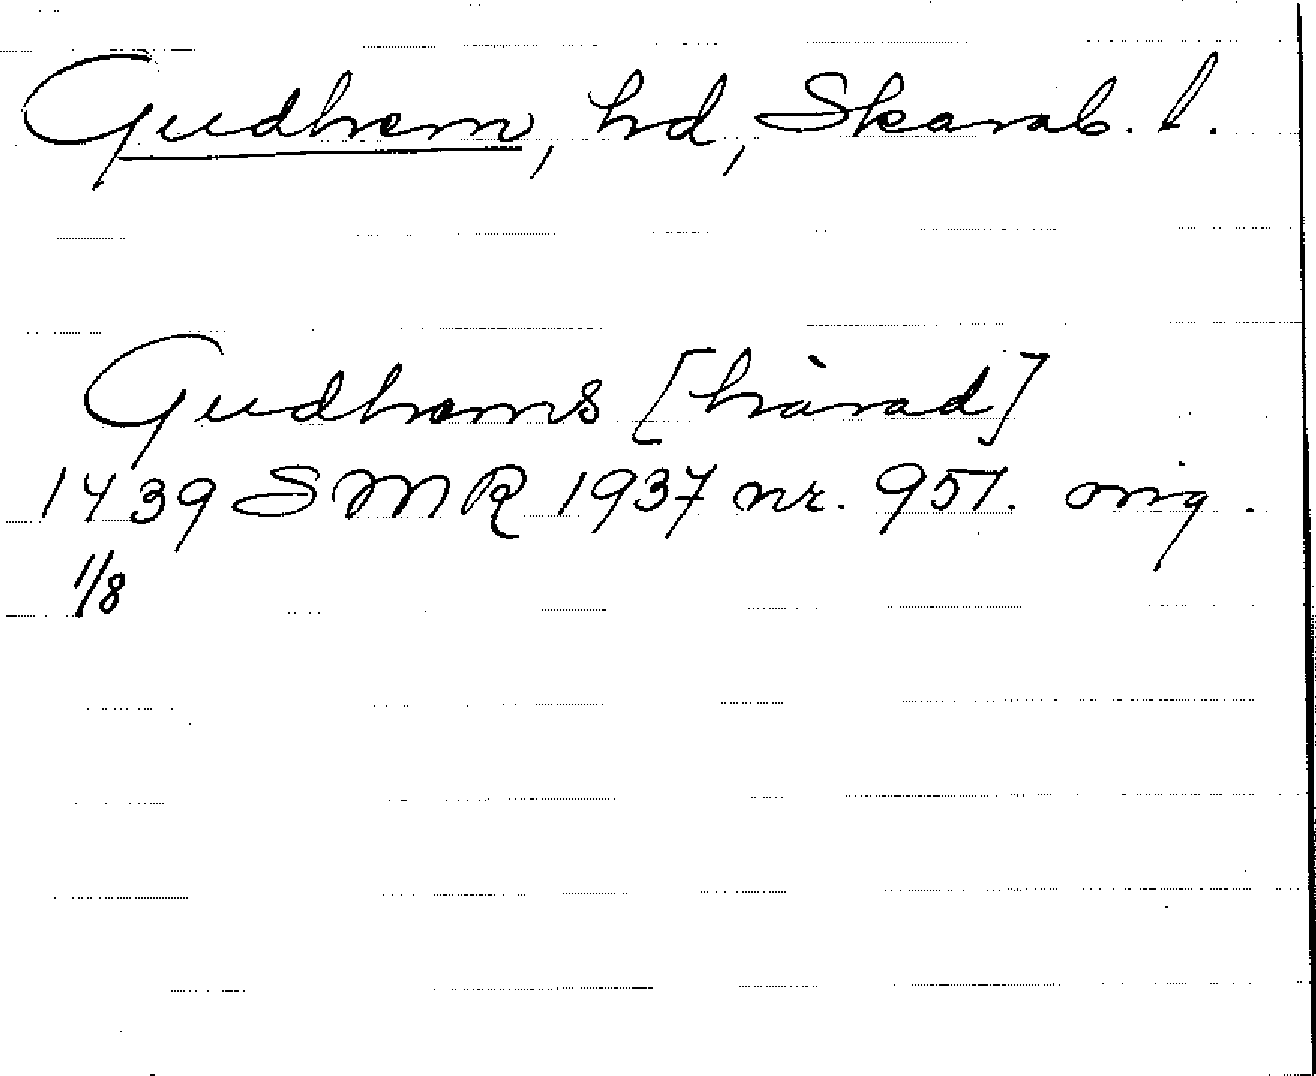 Gudhem, hd, Skarab. l.
Gudhems [härad]
1439 SMR 1937 nr. 957. orig.
1/8